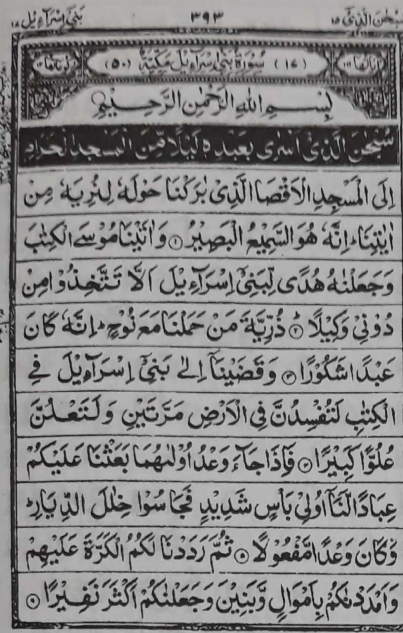 سُبْحٰنَ الَّذِیْۤ ١٥
٣٩٣
بَنِیْۤ اِسْرَآءِیْل ١٧
(١٧) سُوْرَةُ بَنِیْۤ اِسْرَآءِیْلَ مَكِّیَّةٌ (٥٠)
بِسْمِ اللهِ الرَّحْمٰنِ الرَّحِیْمِ
سُبْحٰنَ الَّذِیْۤ اَسْرٰی بِعَبْدِهٖ لَیْلًا مِّنَ الْمَسْجِدِ الْحَرَامِ
اِلَی الْمَسْجِدِ الْاَقْصَا الَّذِیْ بٰرَكْنَا حَوْلَهٗ لِنُرِیَهٗ مِنْ
اٰیٰتِنَا ؕ اِنَّهٗ هُوَ السَّمِیْعُ الْبَصِیْرُ ① وَاٰتَیْنَا مُوْسَی الْكِتٰبَ
وَجَعَلْنٰهُ هُدًی لِّبَنِیْۤ اِسْرَآءِیْلَ اَلَّا تَتَّخِذُوْا مِنْ
دُوْنِیْ وَكِیْلًا ② ذُرِّیَّةَ مَنْ حَمَلْنَا مَعَ نُوْحٍ ؕ اِنَّهٗ كَانَ
عَبْدًا شَكُوْرًا ③ وَقَضَیْنَاۤ اِلٰی بَنِیْۤ اِسْرَآءِیْلَ فِی
الْكِتٰبِ لَتُفْسِدُنَّ فِی الْاَرْضِ مَرَّتَیْنِ وَلَتَعْلُنَّ
عُلُوًّا كَبِیْرًا ④ فَاِذَا جَآءَ وَعْدُ اُوْلٰىهُمَا بَعَثْنَا عَلَیْكُمْ
عِبَادًا لَّنَاۤ اُولِیْ بَاْسٍ شَدِیْدٍ فَجَاسُوْا خِلٰلَ الدِّیَارِ ؕ
وَكَانَ وَعْدًا مَّفْعُوْلًا ⑤ ثُمَّ رَدَدْنَا لَكُمُ الْكَرَّةَ عَلَیْهِمْ
وَاَمْدَدْنٰكُمْ بِاَمْوَالٍ وَّبَنِیْنَ وَجَعَلْنٰكُمْ اَكْثَرَ نَفِیْرًا ⑥